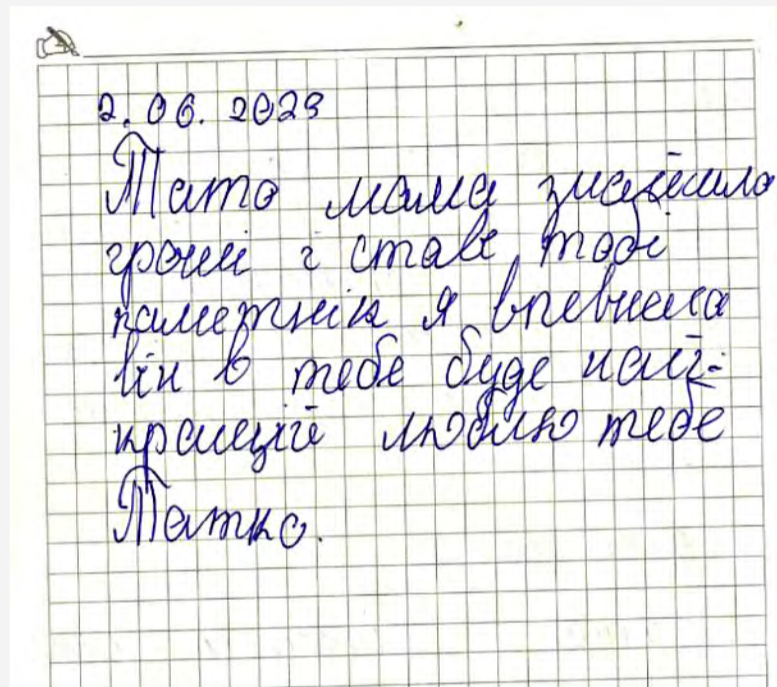 2. 06. 2023
Тато мама знайшла
гроші і ставе тобі
паметнік я впевнена
він в тебе буде най-
кращій люблю тебе
Татко.